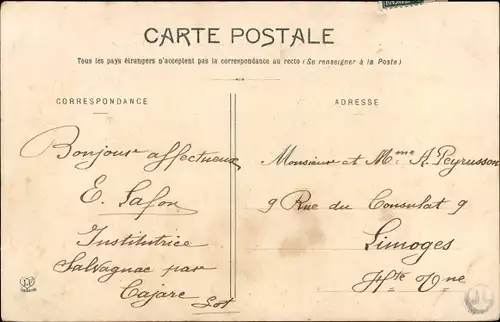 CARTE POSTALE
Tous les pays étrangers n'acceptent pas la correspondance au recto (Se renseigner à la Poste)
CORRESPONDANCE
Bonjour affectueux
E. Lafon
Institutrice
Salvagnac par
Cajarc Lot
ADRESSE
Monsieur et Mme A. Peyrusson
9 Rue du Consulat 9
Limoges
Hte Vne